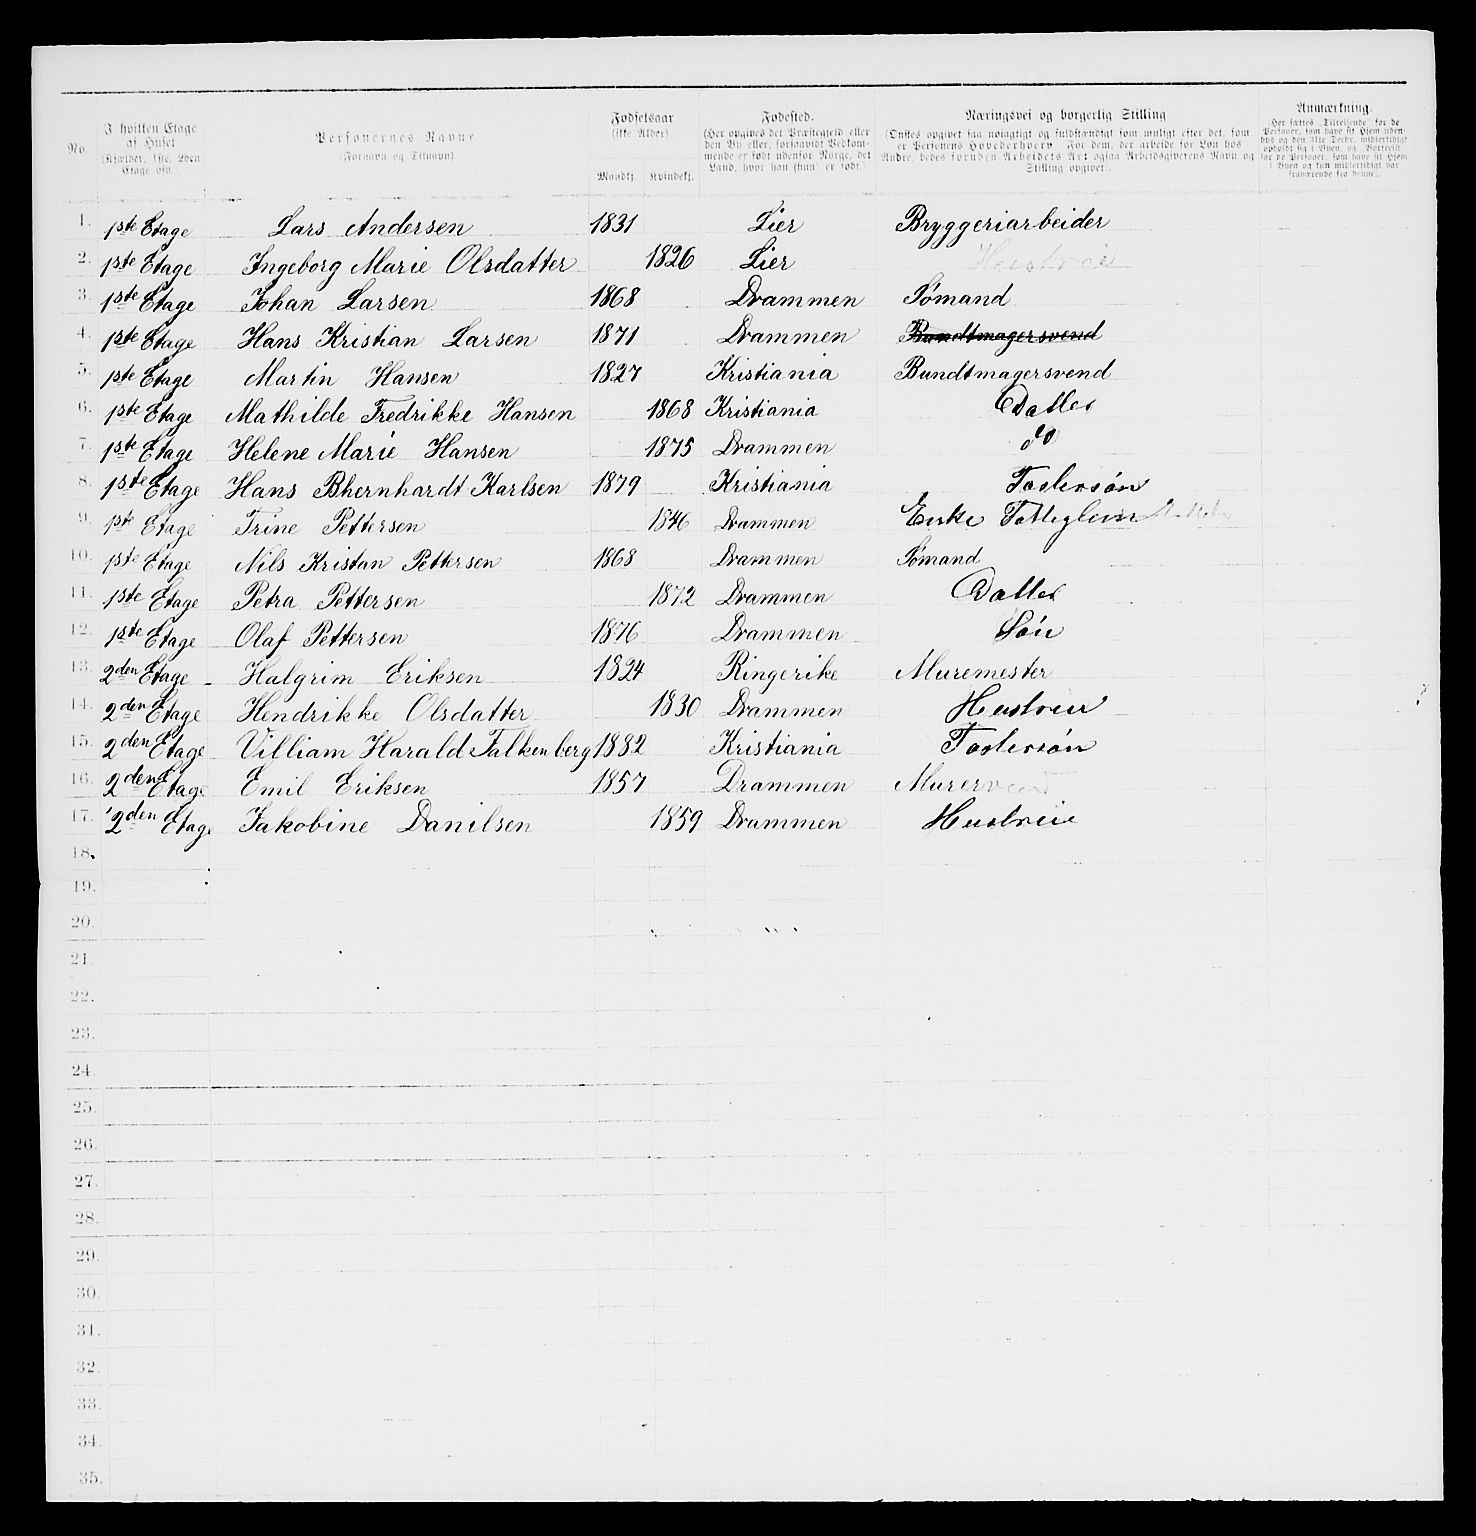 No.
I hvilken Etage af Huset
(Kjælder, 1ste, 2den Etage osv.)
Personernes Navne
(Fornavn og Tilnavn)
Fødselsaar
(ikke Alder).
Mandkj. Kvindekj.
Fødested.
(Her opgives det Præstegjeld eller
den By eller, forsaavidt Vedkom-
mende er født udenfor Norge, det
Land, hvor han (hun) er født.)
Næringsvei og borgerlig Stilling
(Ønskes opgivet saa nøiagtigt og fuldstændigt som muligt efter det, som
er Personens Hovederhverv. For dem, der arbeide for Løn hos
Andre, bedes foruden Arbeidets Art ogsaa Arbeidsgiverens Navn og
Stilling opgivet).
Anmærkning.
(Her sættes „Tilreisende" for de
Personer, som have sit Hjem uden-
bys og den 31te Decbr. midlertidigt
opholdt sig i Byen, og „Bortreist"
for de Personer, som have sit Hjem
i Byen og kun midlertidigt var
fraværende fra denne).
1. 1ste Etage Lars Andersen 1831 Lier Bryggeriarbeider
2. 1ste Etage Ingeborg Marie Olsdatter 1826 Lier Hustrue
3. 1ste Etage Johan Larsen 1868 Drammen Sømand
4. 1ste Etage Hans Kristian Larsen 1871 Drammen Bundtmagersvend
5. 1ste Etage Martin Hansen 1827 Kristiania Bundtmagersvend
6. 1ste Etage Mathilde Fredrikke Hansen 1868 Kristiania Datter
7. 1ste Etage Helene Marie Hansen 1875 Drammen do
8. 1ste Etage Hans Bhernhardt Karlsen 1879 Kristiania Fostersøn
9. 1ste Etage Trine Pettersen 1846 Drammen Enke
10. 1ste Etage Nils Kristan Pettersen 1868 Drammen Sømand
11. 1ste Etage Petra Pettersen 1872 Drammen Datter
12. 1ste Etage Olaf Pettersen 1876 Drammen Søn
13. 2den Etage Halgrim Eriksen 1824 Ringerike Muremester
14. 2den Etage Hendrikke Olsdatter 1830 Drammen Hustrue
15. 2den Etage Villiam Harald Falkenberg 1882 Kristiania Fostersøn
16. 2den Etage Emil Eriksen 1857 Drammen Murersvend
17. 2den Etage Jakobine Danilsen 1859 Drammen Hustrue
18.
19.
20.
21.
22.
23.
24.
25.
26.
27.
28.
29.
30.
31.
32.
33.
34.
35.